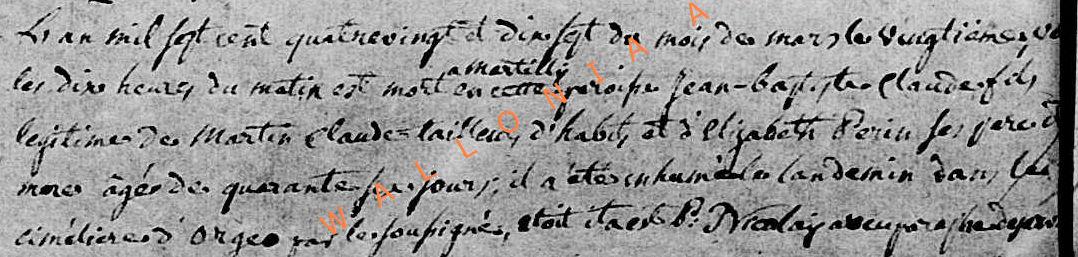 L'an mil sept cent quatrevingt et dix sept du mois de mars le vingtième
a martilly
les dix heures du matin est mort en cette paroisse Jean-baptiste Claude fils
legitime de Martin Claude tailleur d'habits et d'Elizabeth Perin ses pere et
mere âgé de quarante six jours, il a été inhumé le landemin dans le
cimétiere d'Orgeo par le soussigné, etoit P. Nicolaÿ
WALLONIA